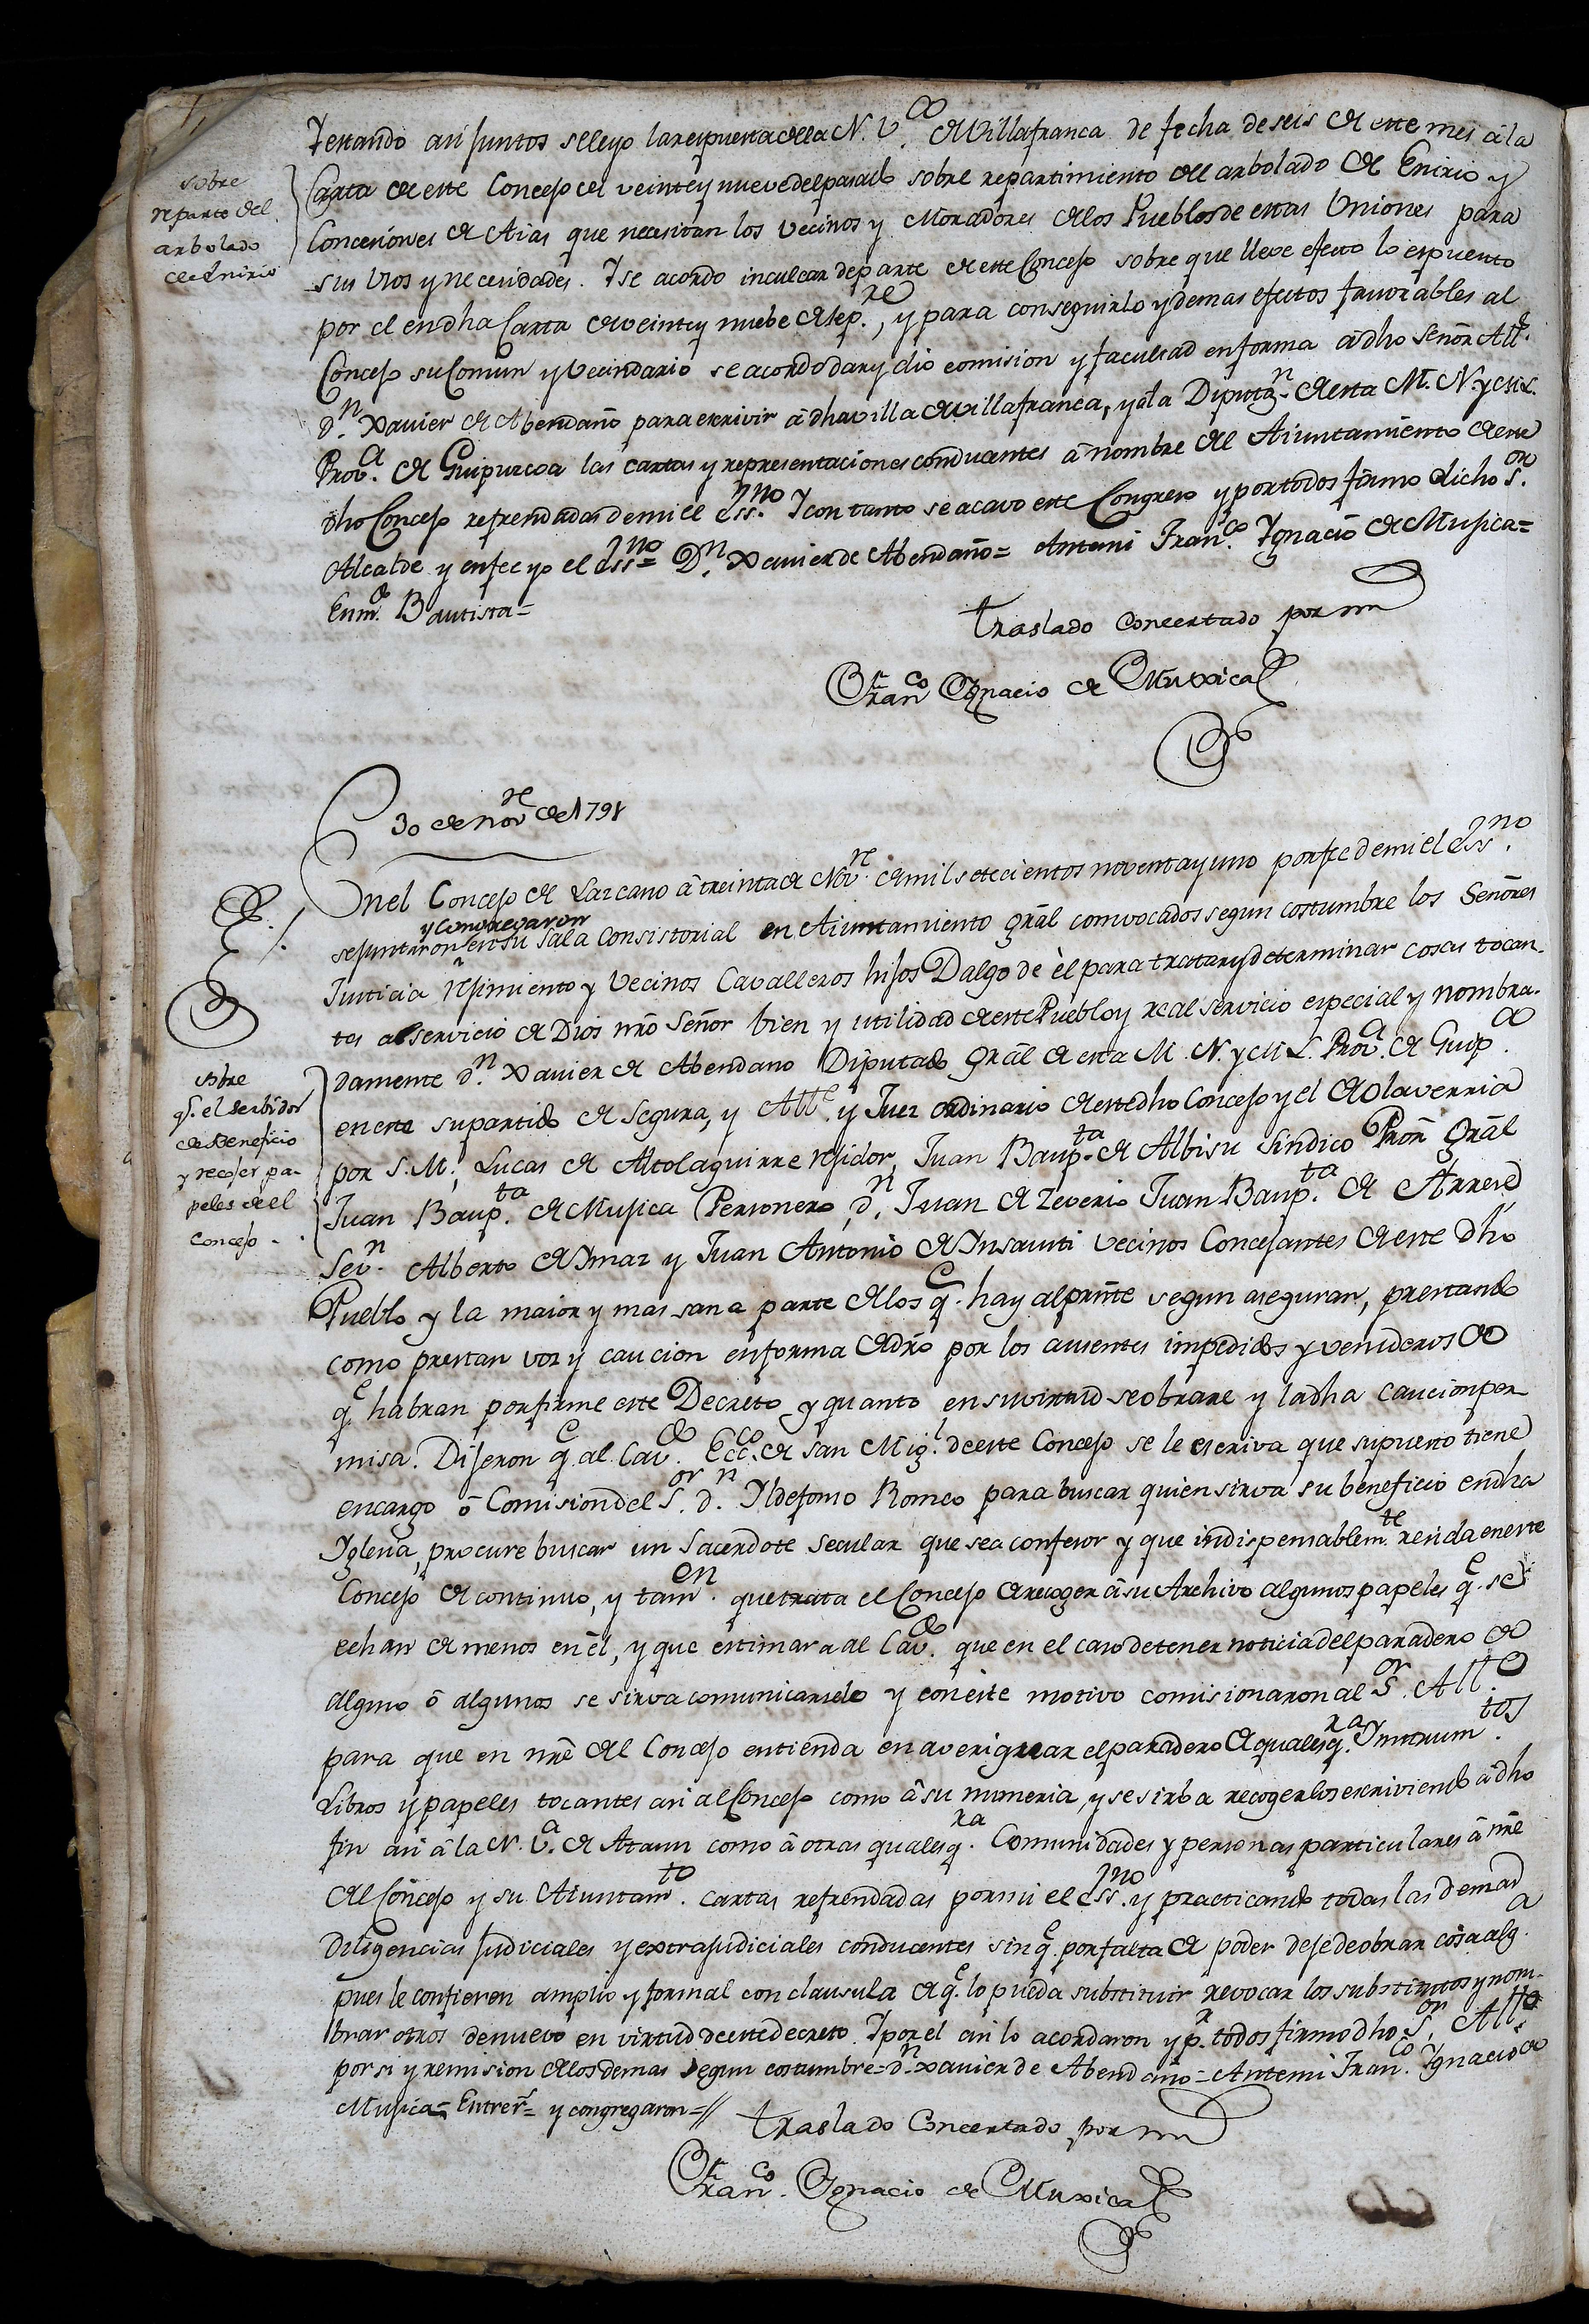 Y estando asi juntos se leyo la respuesta de la N. V.ª de Villafranca de fecha de seis de este mes â la
sobre
reparto del
arbolado
de Enirio
Carta de este Concejo del veinte y nueve del pasado sobre repartimiento del arbolado de Enirio y
Concesiones de Aias que necesitan los vecinos y Moradores de los Pueblos de estas Uniones para
sus Usos y necesidades. Y se acordo inculcar de parte de este Concejo sobre que lleve efecto lo espuesto
por el en dha Carta de veinte y nuebe de sep.re, y para conseguirlo y demas efectos favorables al
Concejo su Comun y Vecindario se acordo dar y dio comision y facultad en forma â dho Señor All.e
d.n Xavier de Abendaño para escrivir â dha villa de villafranca, y a la Diputaz.n de esta M. N. y M. L.
Prov.a de Guipuzcoa las cartas y representaciones conducentes â nombre del Aiuntamiento de este
dho Concejo refrendadas de mi el Ess.no Y con tanto se acavo este Congreso y por todos firmo dicho S.or
Alcalde y en fee yo el Ess.no = D.n Xavier de Abendaño = Antemi Fran.co Ygnacio de Mujica =
Enm.do Bautista =
Traslado Concertado por mi
Fran.co Ygnacio de Muxica
30 de Nov.re de 1791
En el Concejo de Lazcano â treinta de Nov.re de mil setecientos noventa y uno por fee de mi el Ess.no
y congregaron
se juntaron en su sala Consistorial en Aiuntamiento grâl convocados segun costumbre los Señores
Justicia rejimiento y Vecinos Cavalleros hijos Dalgo de êl para tratar y determinar cosas tocan-
tes al servicio de Dios nrô Señor bien y utilidad de este Pueblo y real servicio especial y nombra-
damente d.n Xavier de Abendano Diputado Grâl de esta M. N. y M. L. Prov.a de Guip.a
sobre
q.e el serbidor
de Beneficio
y recojer pa-
peles de el
Concejo
en este su partido de Segura, y All.e y Juez ordinario de este dho Concejo y el de Olaverria
por S. M., Lucas de Altolaguirre rejidor, Juan Baup.ta de Albisu Sindico Prôr Grâl
Juan Baup.ta de Mujica Personero, d.n Juan de Zeverio Juan Baup.ta de Arrese
Sev.n Alberto de Ymaz y Juan Antonio de Ynsausti vecinos Concejantes de este dho
Pueblo y la maior y mas sana parte de los q.e hay al prñte segun aseguran, prestando
como prestan voz y caucion en forma de drô por los ausentes impedidos y venideros de
q.e habran por firme este Decreto y quanto en su virtud se obrare y la dha caucion per
misa. Dijeron q.e al Cav.do Ecc.co de San Mig.l de este Concejo se le escriva que supuesto tiene
encargo ô Comision del S.or d.n Yldefonso Romeo para buscar quien sirva su beneficio en dha
Yglesia, procure buscar un Sacerdote Secular que sea confesor y que indispensablem.te resida en este
Concejo de continuo, y tam.en que trata el Concejo de recoger â su Archivo algunos papeles q.e se
echan de menos en êl, y que estimara al Cav.do que en el caso de tener noticia del paradero de
alguno ô algunos se sirva comunicarselo y con este motivo comisionaron al S.or All.e
para que en nrê del Concejo entienda en averiguar el paradero de qualesq.ra Ynstrum.tos
Libros y papeles tocantes asi al Concejo como â su numeria, y se sirba recogerlos escriviendo â dho
fin asi â la N. V.a de Ataun como â otras qualesq.ra Comunidades y personas particulares â nrê
del Concejo y su Aiuntam.to cartas refrendadas por mi el Ess.no y practicando todas las demas
Diligencias judiciales y extrajudiciales conducentes sin q.e por falta de poder deje de obrar cosa alg.a
pues le confieren amplio y formal con clausula de q.e lo pueda substituir revocar los substitutos y nom-
brar otros de nuevo en virtud de este decreto. Y por el asi lo acordaron y p.r todos firmo dho S.or All.e
por si y remision de los demas segun costumbre = d.n Xavier de Abendaño = Antemi Fran.co Ygnacio de
Mujica = Entrer.s = y congregaron = //
Traslado Concertado por mi
Fran.co Ygnacio de Muxica